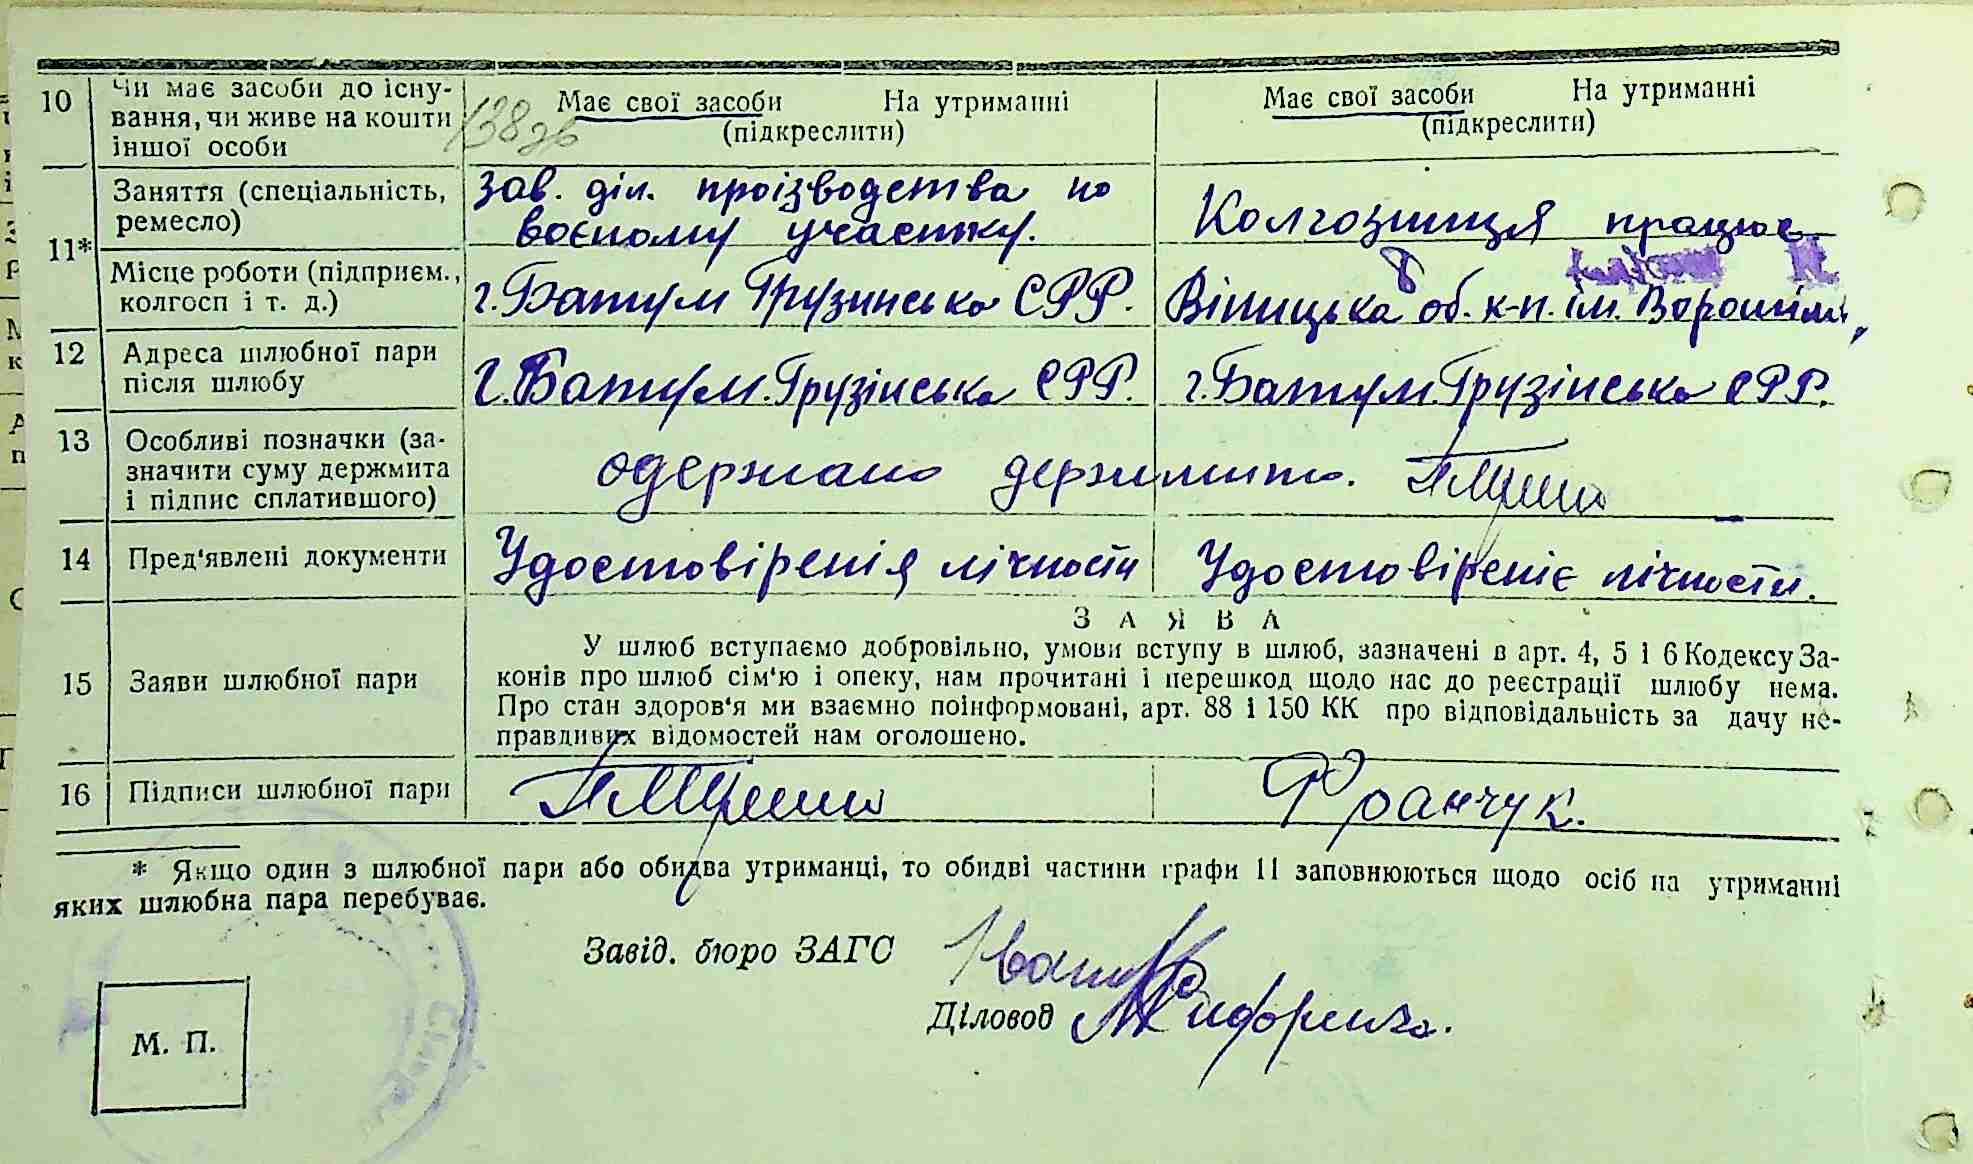 10 Чи має засоби до існу-
вання, чи живе на кошти
іншої особи
138зв
Має свої засоби На утриманні
(підкреслити)
Має свої засоби На утриманні
(підкреслити)
11*
Заняття (спеціальність,
ремесло)
зав. діл. производства по
воєному участку.
Колгозниця працює
Місце роботи (підприєм.,
колгосп і т. д.)
г. Батум Грузинська СРР.
в
Віницька об. к-п. ім. Ворошіл
12 Адреса шлюбної пари
після шлюбу
г. Батум. Грузінська СРР.
г. Батум. Грузінська СРР.
13 Особливі позначки (за-
значити суму держмита
і підпис сплатившого)
одержано держмито.
14 Пред'явлені документи
Удостовіренія лічности
Удостовіреніє лічности.
15 Заяви шлюбної пари
ЗАЯВА
У шлюб вступаємо добровільно, умови вступу в шлюб, зазначені в арт. 4, 5 і 6 Кодексу За-
конів про шлюб сім'ю і опеку, нам прочитані і перешкод щодо нас до реєстрації шлюбу нема.
Про стан здоров'я ми взаємно поінформовані, арт. 88 і 150 КК про відповідальність за дачу не-
правдивих відомостей нам оголошено.
16 Підписи шлюбної пари
Франчук.
* Якщо один з шлюбної пари або обидва утриманці, то обидві частини графи 11 заповнюються щодо осіб на утриманні
яких шлюбна пара перебуває.
Завід. бюро ЗАГС
Діловод
М. П.